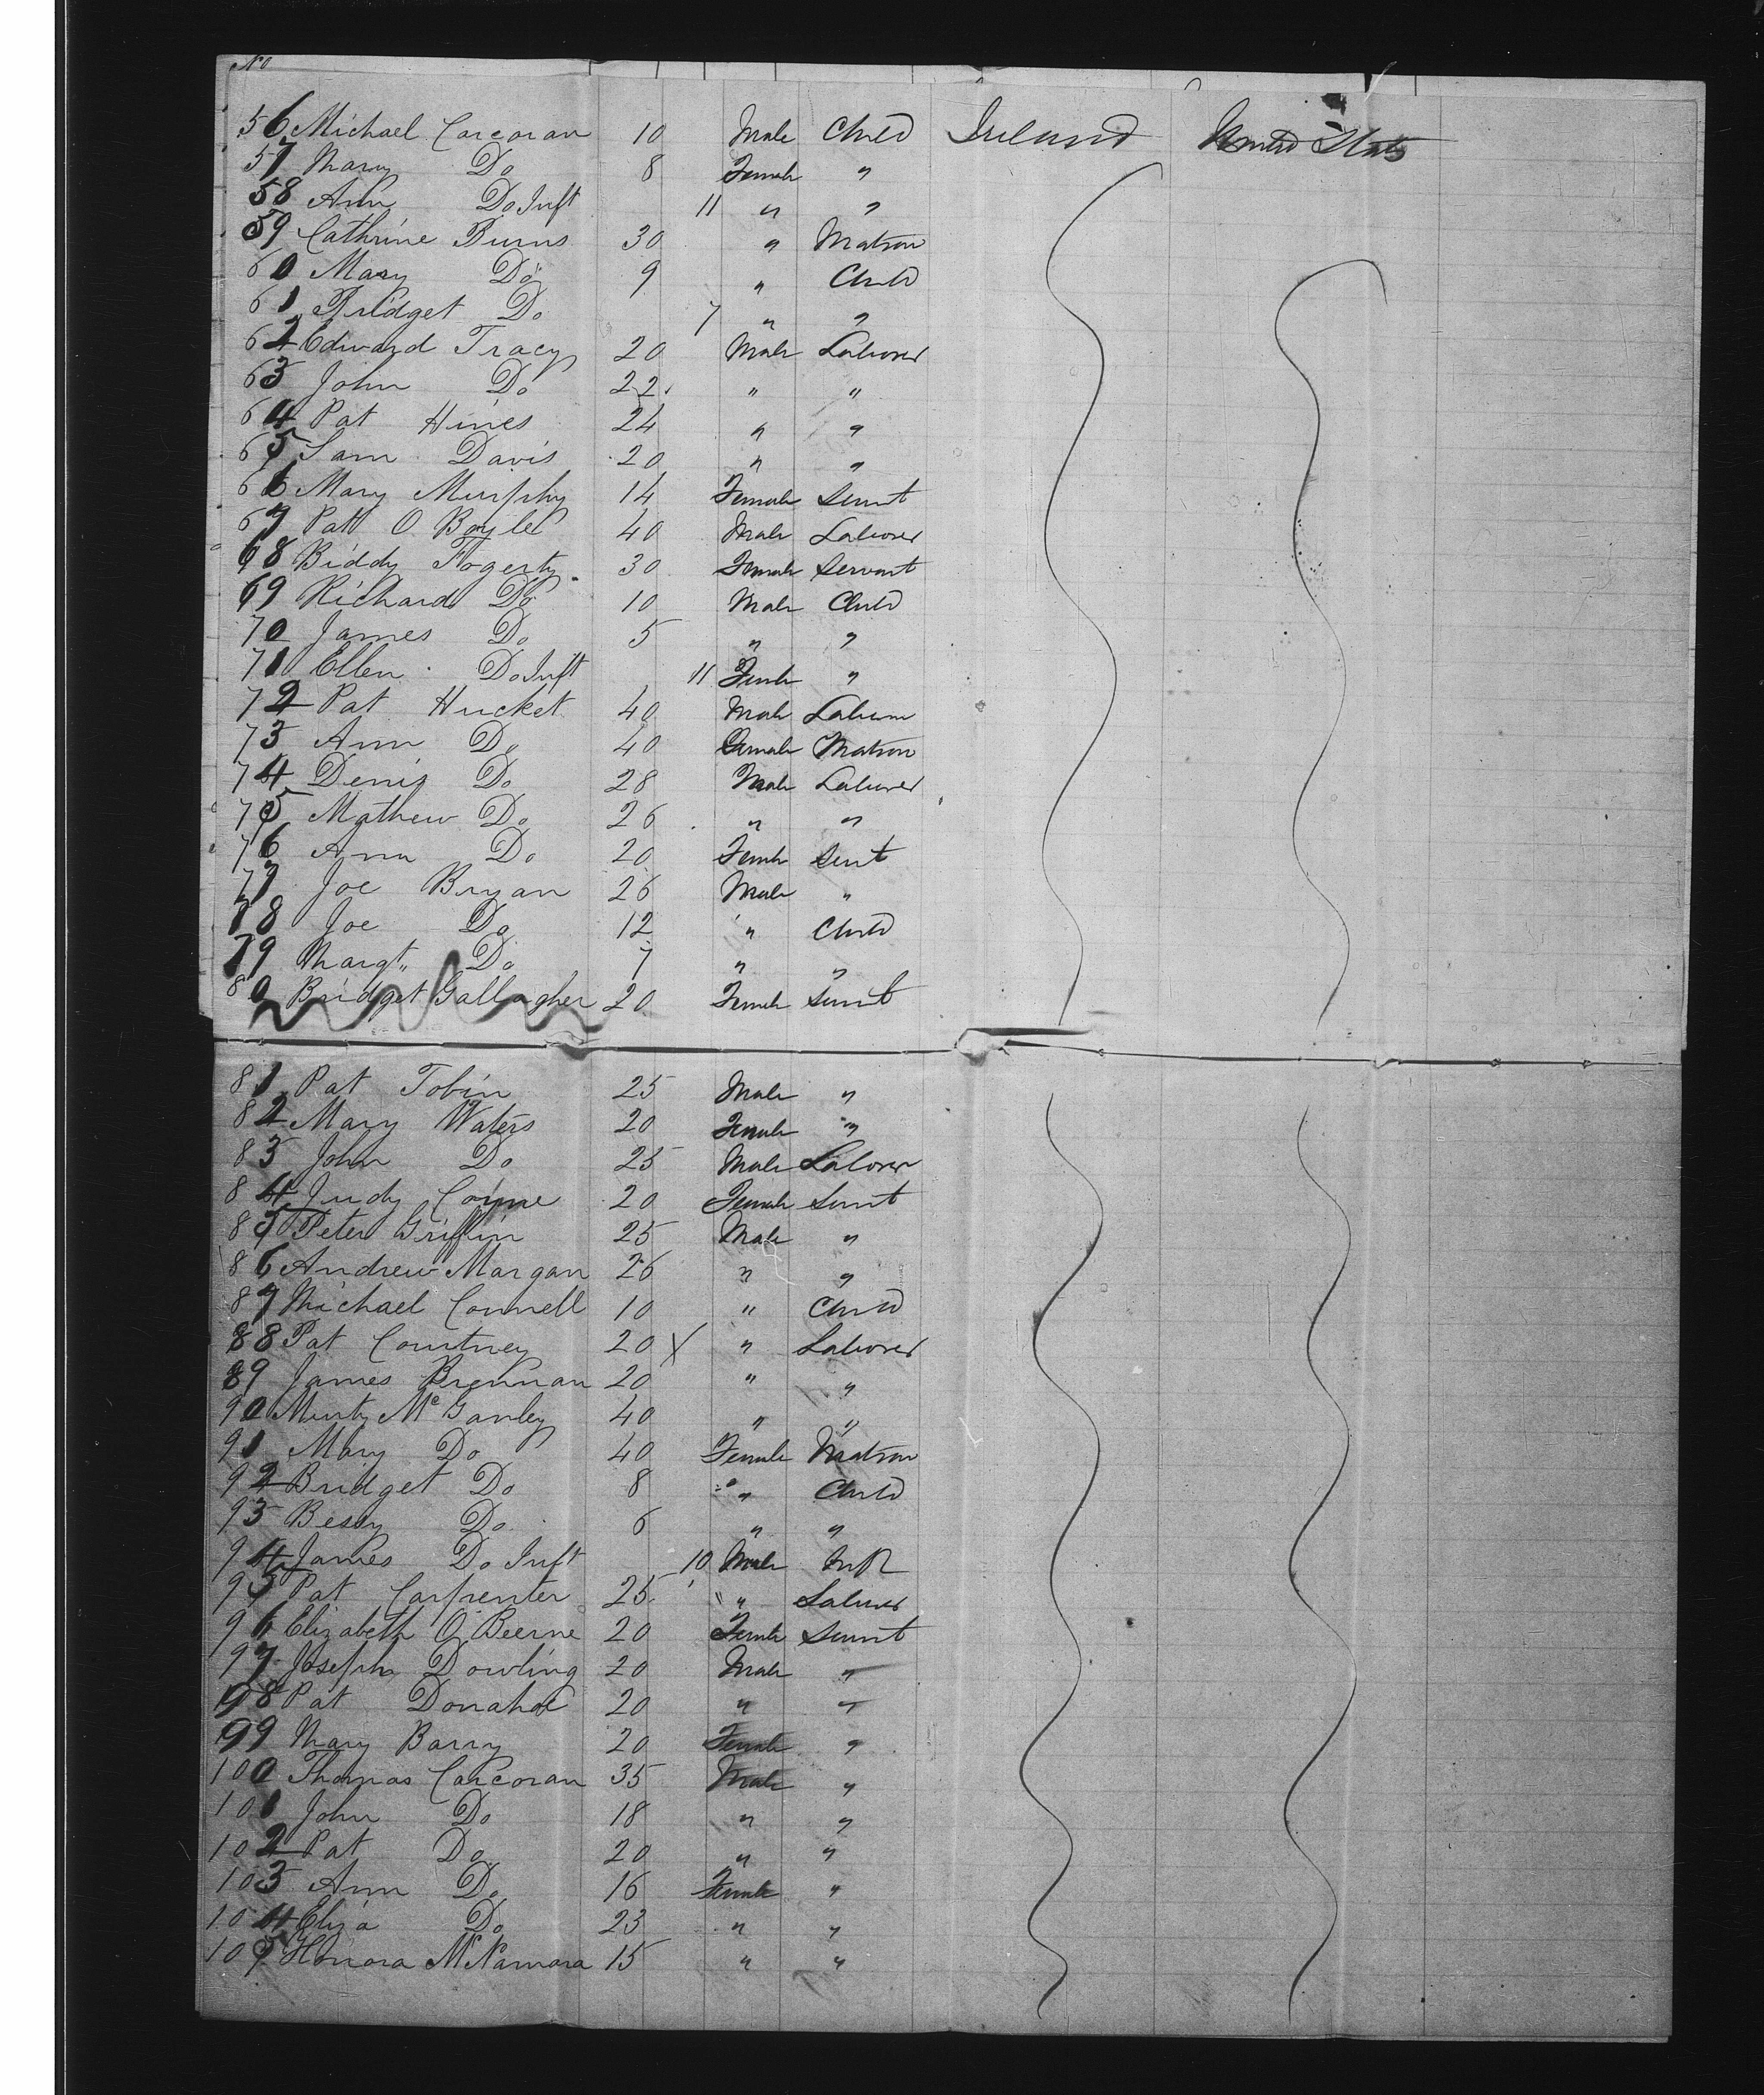 No
56 Michael Corcoran 10 Male Child Ireland United States
57 Mary Do 8 Female "
58 Ann Do Inft 11 " "
59 Cathrine Burns 30 " Matron
60 Mary Do 9 " Child
61 Bridget Do 7 " "
62 Edward Tracy 20 Male Laborer
63 John Do 22 " "
64 Pat Hines 24 " "
65 Sam Davis 20 " "
66 Mary Murphy 14 Female Servt
67 Patt O Boyle 40 Male Laborer
68 Biddy Fogerty 30 Female Servant
69 Richard Do 10 Male Child
70 James Do 5 " "
71 Ellen Do Inft 11 Female "
72 Pat Hucket 40 Male Laborer
73 Ann Do 40 Female Matron
74 Denis Do 28 Male Laborer
75 Mathew Do 26 " "
76 Ann Do 20 Female Servt
77 Joe Bryan 26 Male "
78 Joe Do 12 " Child
79 Margt Do 7 " "
80 Bridget Gallagher 20 Female Servt
81 Pat Tobin 25 Male "
82 Mary Waters 20 Female "
83 John Do 25 Male Laborer
84 Judy 20 Female Servt
85 Peter Griffin 25 Male "
86 Andrew Margan 26 " "
87 Michael Connell 10 " Child
88 Pat Courtney 20 X " Laborer
89 James Brennan 20 " "
90 Murty McGanley 40 " "
91 Mary Do 40 Female Matron
92 Bridget Do 8 " Child
93 Bessy Do 6 " "
94 James Do Inft 10 Male
95 Pat Carpenter 25 " Laborer
96 Elizabeth O Beerne 20 Female Servt
97 Joseph Dowling 20 Male "
98 Pat Donahoe 20 " "
99 Mary Barry 20 Female "
100 Thomas Corcoran 35 Male "
101 John Do 18 " "
102 Pat Do 20 " "
103 Ann Do 16 Female "
104 Eliza Do 23 " "
105 Honora McNamara 15 " "